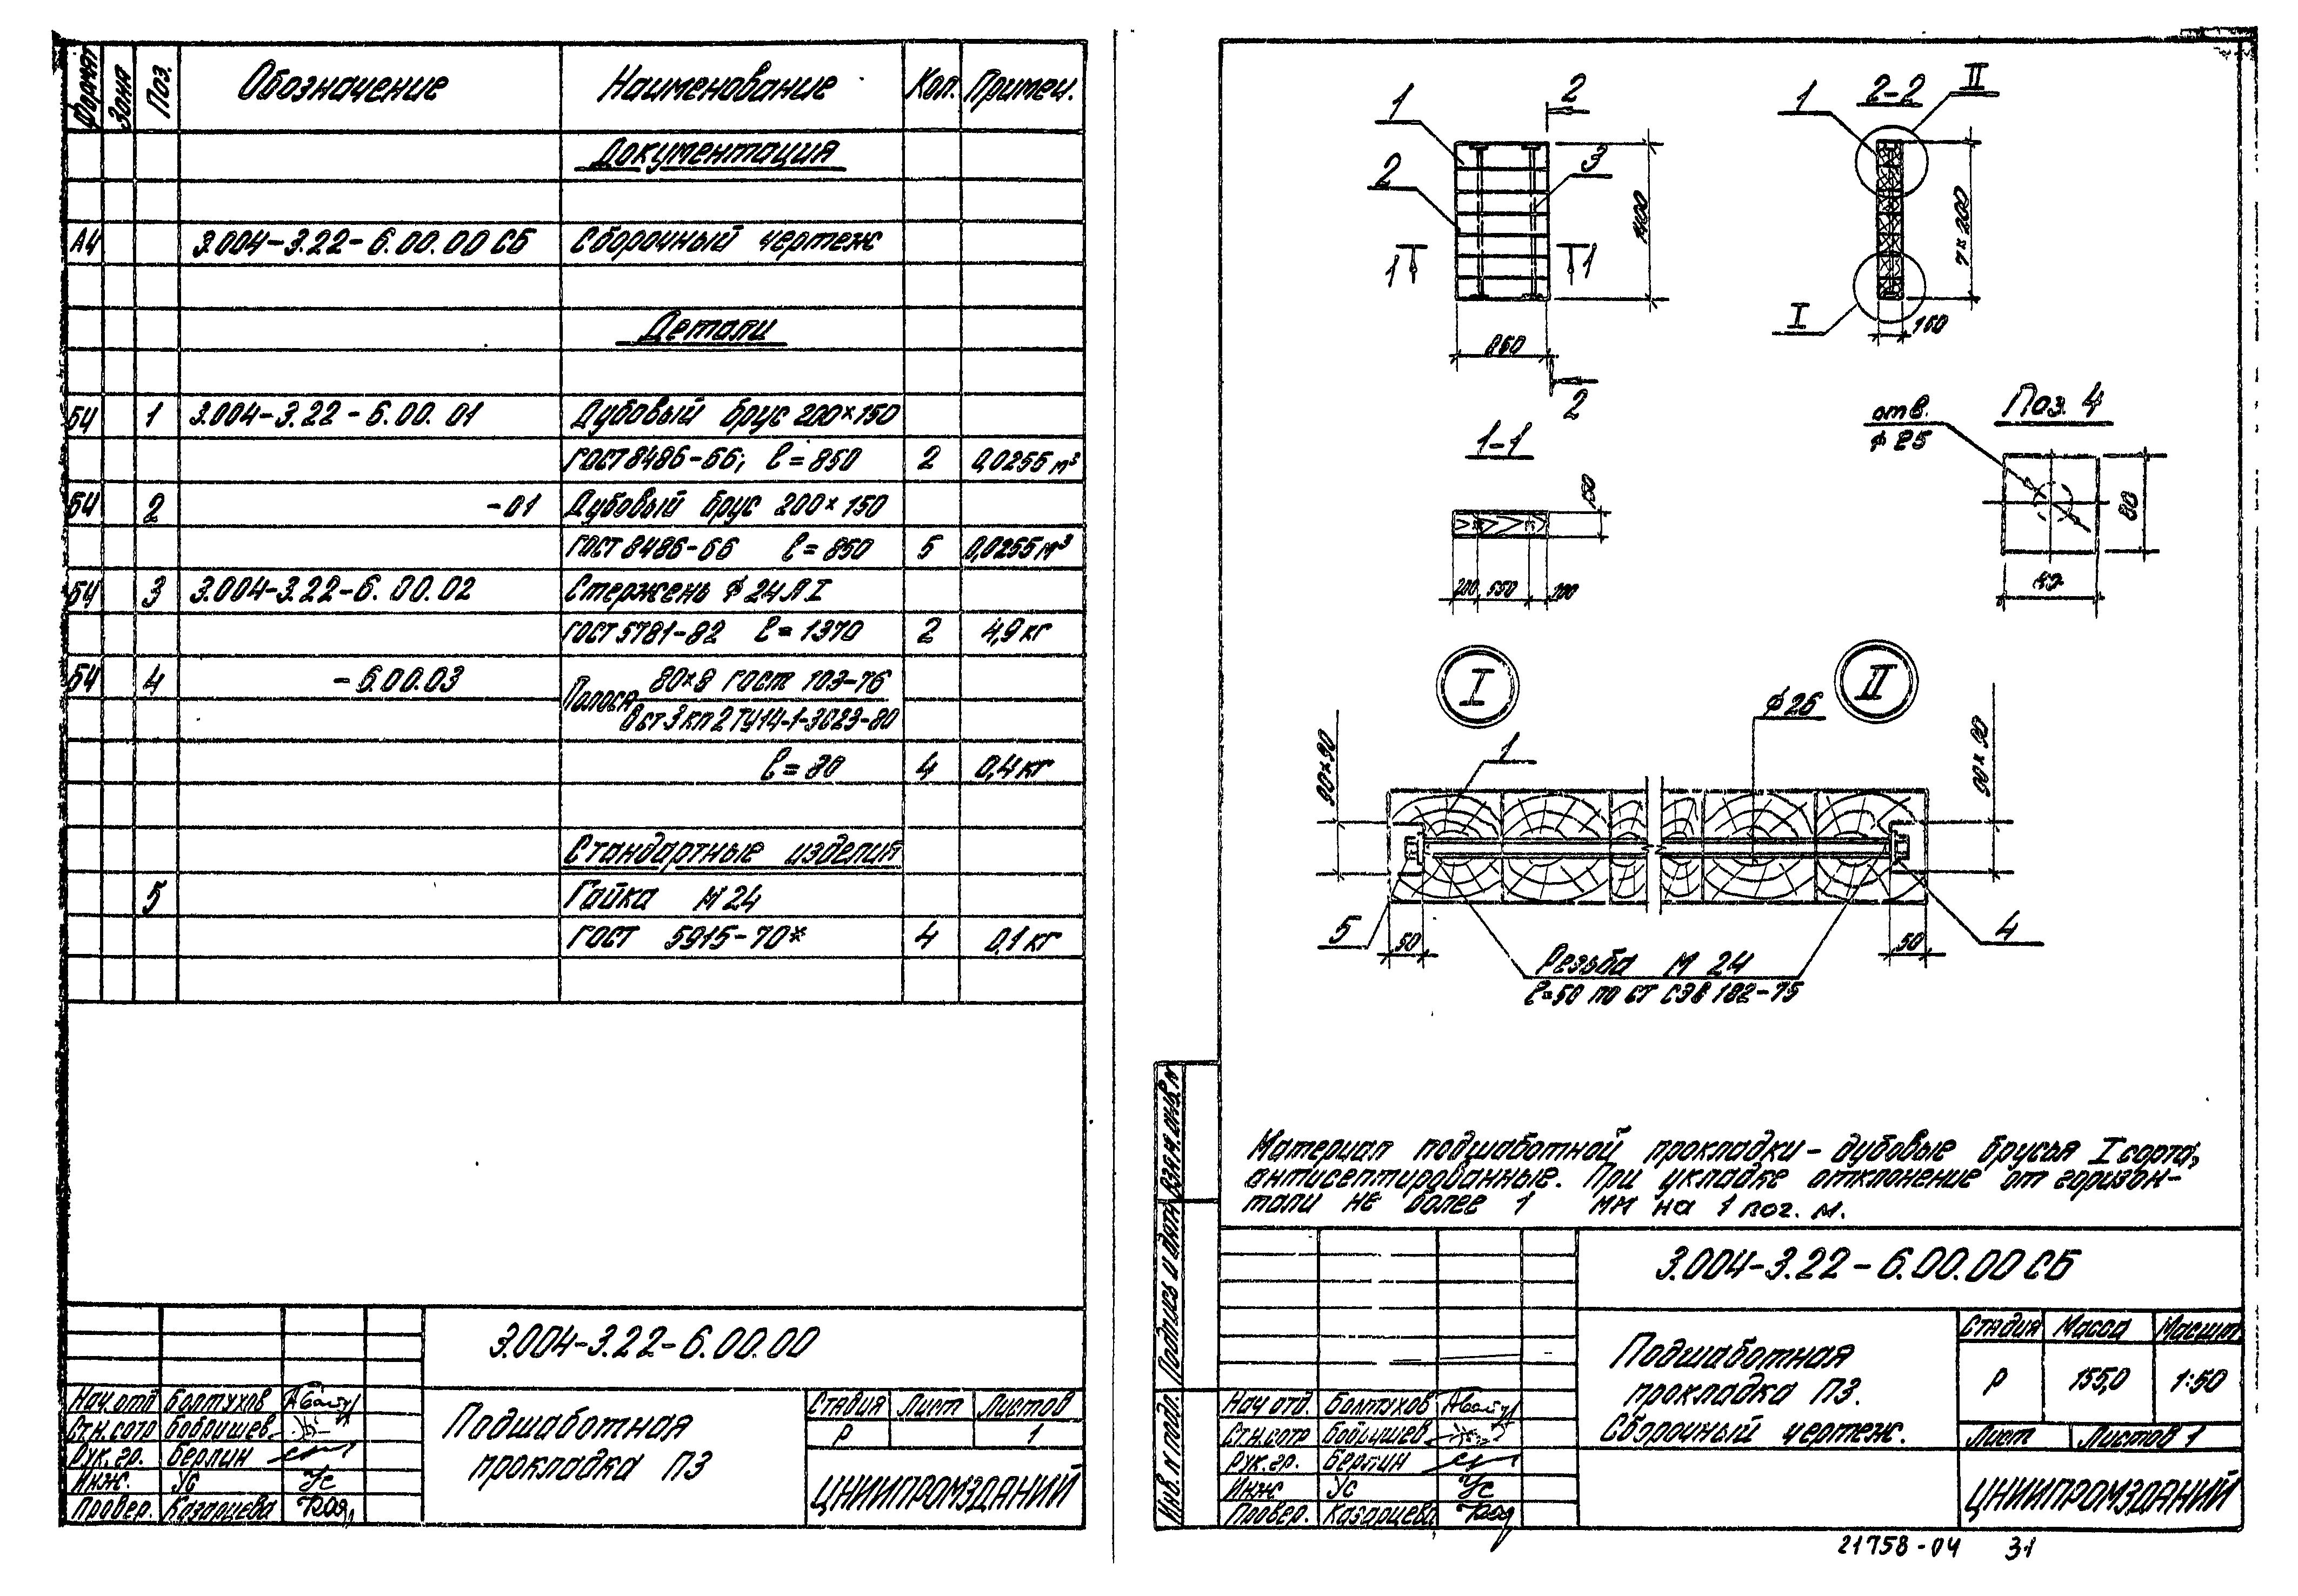 Формат Зона Поз. Обозначение Наименование Кол. Примеч.
Документация
А4 3.004-3.22-6.00.00 СБ Сборочный чертеж
Детали
БЧ 1 3.004-3.22-6.00.01 Дубовый брус 200×150
ГОСТ 8486-66; ℓ=850 2 0,0255 м³
БЧ 2 -01 Дубовый брус 200×150
ГОСТ 8486-66 ℓ=850 5 0,0255 м³
БЧ 3 3.004-3.22-6.00.02 Стержень ϕ 24 А I
ГОСТ 5781-82 ℓ=1370 2 4,9 кг
БЧ 4 -6.00.03 Полоса 80×8 ГОСТ 103-76
Вст 3 кп 2 ТУ14-1-3023-80
ℓ=80 4 0,4 кг
Стандартные изделия
5 Гайка М 24
ГОСТ 5915-70* 4 0,1 кг
3.004-3.22-6.00.00
Нач. отд Болтухов
Ст.н.сотр Бобрышев
Рук. гр. Берлин
Инж. Ус Ус
Провер. Казарцева
Подшаботная
прокладка П3
Стадия Лист Листов
Р 1
ЦНИИПРОМЗДАНИЙ
1 2
2 3
1400
1 1
860
2
2-2
1 II
7×200
I
150
1-1
150
200 550 100
Поз. 4
отв.
ϕ 25
80
I II
ϕ 26
90×90
1
90×90
5 4
50 50
Резьба М 24
ℓ=50 по ст СЭВ 182-75
Материал подшаботной прокладки - дубовые брусья I сорта,
антисептированные. При укладке отклонение от горизон-
тали не более 1 мм на 1 пог. м.
Взам. инв. N
Подпись и дата
Инв. N подл.
3.004-3.22-6.00.00 СБ
Нач отд. Болтухов
Ст.н.сотр Бобрышев
Рук. гр. Берлин
Инж Ус Ус
Провер. Казарцева
Подшаботная
прокладка П3.
Сборочный чертеж.
Стадия Масса Масшт
Р 155,0 1:50
Лист Листов 1
ЦНИИПРОМЗДАНИЙ
21758-04 31